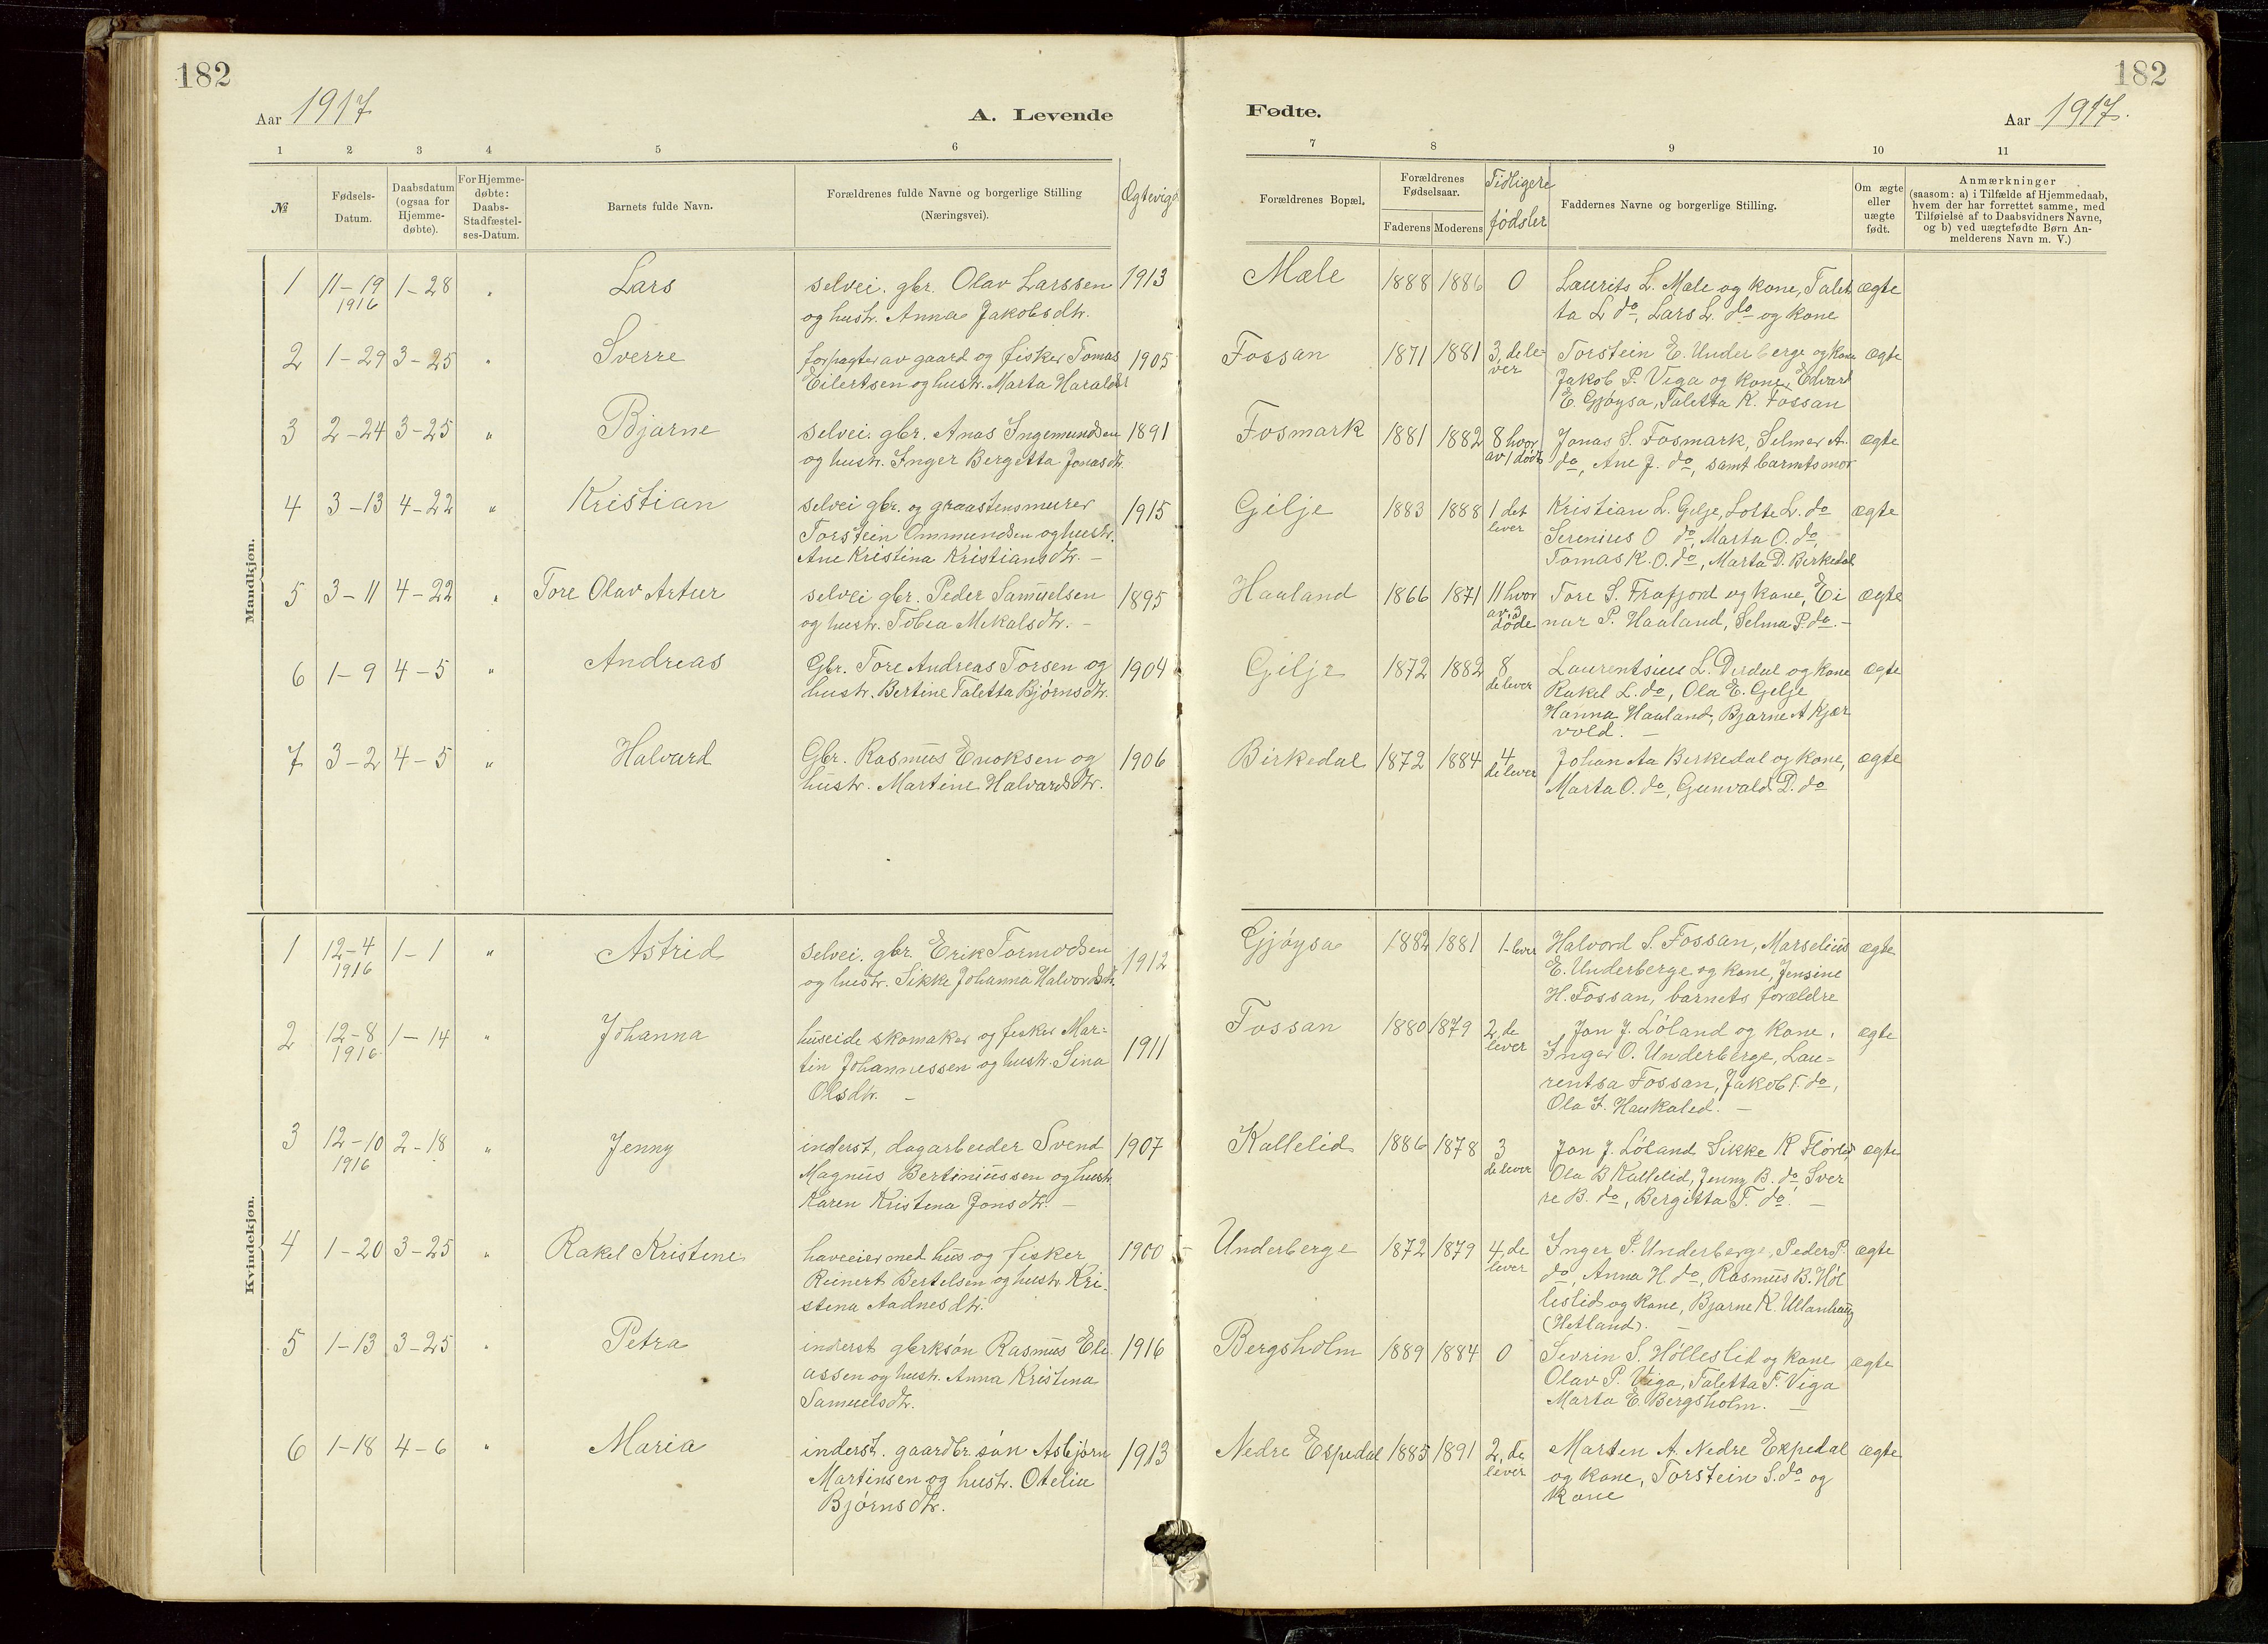 182
Aar 1917
A. Levende
1 2 3 4 5 6
№
Fødsels-Datum.
Daabsdatum (ogsaa for Hjemme-døbte).
For Hjemme-døbte: Daabs-Stadfæstel-ses-Datum.
Barnets fulde Navn.
Forældrenes fulde Navne og borgerlige Stilling
(Næringsvei).
Ægtevigs
Mandkjøn.
1 11-19 1916 1-28 " Lars
selvei. gbr. Olav Larssen 1913
og hustr. Anna Jakobsdtr.
2 1-29 3-25 " Sverre
forpagter av gaard og fisker Tomas 1905
Eilertsen og hustr. Marta Haraldsd
3 2-24 3-25 " Bjarne
selvei. gbr. Anas Ingemundsen 1891
og hustr. Inger Bergetta Jonasdtr.
4 3-13 4-22 " Kristian
selvei gbr. og graastensmurer 1915
Torstein Ommundsen og hustr.
Ane Kristina Kristiansdtr. -
5 3-11 4-22 " Tore Olav Artur
selvei gbr. Peder Samuelsen 1895
og hustr. Tobea Mikalsdtr. -
6 1-9 4-5 " Andreas
Gbr. Tore Andreas Torsen og 1904
hustr. Bertine Taletta Bjørnsdtr.
7 3-2 4-5 " Halvard
Gbr. Rasmus Enoksen og 1906
hustr. Martine Halvardsdtr.
Kvindekjøn.
1 12-4 1916 1-1 " Astrid
selvei. gbr. Erik Tormodsen 1912
og hustr. Sikke Johanna Halvordsdt.
2 12-8 1916 1-14 " Johanna
huseide skomaker og fisker Mar=
tin Johannessen og hustr. Sina 1911
Olsdtr. -
3 12-10 1916 2-18 " Jenny
inderst, dagarbeider Svend 1907
Magnus Bertiniussen og hustr.
Karen Kristina Jonsdtr. -
4 1-20 3-25 " Rakel Kristine
haveeier med hus og fisker 1900
Reinert Bertelsen og hustr. Kri-
stena Aadnesdtr.
5 1-13 3-25 " Petra
inderst gbrksøn Rasmus Eli 1916
assen og hustr. Anna Kristina
Samuelsdtr.
6 1-18 4-6 " Maria
inderst. gaardbr. søn Asbjørn 1913
Martinsen og hustr. Oteliu
Bjørnsdtr.
182
Fødte.
Aar 1917.
7 8 9 10 11
Forældrenes Bopæl.
Forældrenes Fødselsaar.
Faderens Moderens
Tidligere fødsler
Faddernes Navne og borgerlige Stilling.
Om ægte eller uægte født.
Anmærkninger
(saasom: a) i Tilfælde af Hjemmedaab,
hvem der har forrettet samme, med
Tilføielse af to Daabsvidners Navne,
og b) ved uægtefødte Børn An-
melderens Navn m. V.)
Mæle 1888 1886 0 Laurits L. Mæle og kone, Talet ægte
ta L do, Lars L. do og kone
Fossan 1871 1881 3, de le= ver Torstein E. Underberge og kone ægte
Jakob P. Viga og kone, Edvard
E. Gjøysa, Taletta K. Fossan
Fosmark 1881 1882 8 hvor av 1 død Jonas S. Fosmark, Selmer A. ægte
do, Ane J. do, samt barnets mor
Gilje 1883 1888 1 det lever Kristian L. Gilje, Lotte L. do ægte
Serenius O do, Marta O. do,
Tomas K. O. do, Marta D. Birkedal
Haaland 1866 1871 11 hvor av 3 døde Tore S. Frafjord og kone, Ei ægte
nar P. Haaland, Selma P. do. -
Gilje 1872 1882 8 de lever Laurentsius L. Dirdal og kone ægte
Rakel L. do, Ola E. Gilje
Hanna Haaland, Bjarne A Kjær
vold. -
Birkedal 1872 1884 4 de lever Johan Aa Birkedal og kone, ægte
Marta O. do, Gunvald D. do
Gjøysa 1882 1881 1 lever Halvord S. Fossan, Marselius ægte
E. Underberge og kone, Jensine
H. Fossan, barnets forældre
Fossan 1880 1879 2, de lever Jon J. Løland og kone, ægte
Inger O. Underberge, Lau=
rentsa Fossan, Jakob T. do,
Ola T. Haukalid. -
Kallelid 1886 1878 3 de lever Jon J. Løland Sikke K Flørlid, ægte
Ola B Kallelid, Jenny B. do Sver
re B. do, Bergitta T. do. -
Underberge 1872 1879 4, de lever Inger P. Underberge, Peder P. ægte
do, Anna H. do, Rasmus B. Høl
leslid og kone, Bjarne K. Ullanhaug
(Hetland). -
Bergsholm 1889 1884 0 Sevrin S. Hølleslid og kone ægte
Olav P. Viga, Taletta T. Viga
Marta E. Bergsholm. -
Nedre Espedal 1885 1891 2, de lever Marten A. Nedre Espedal ægte
og kone, Torstein S. do og
kone